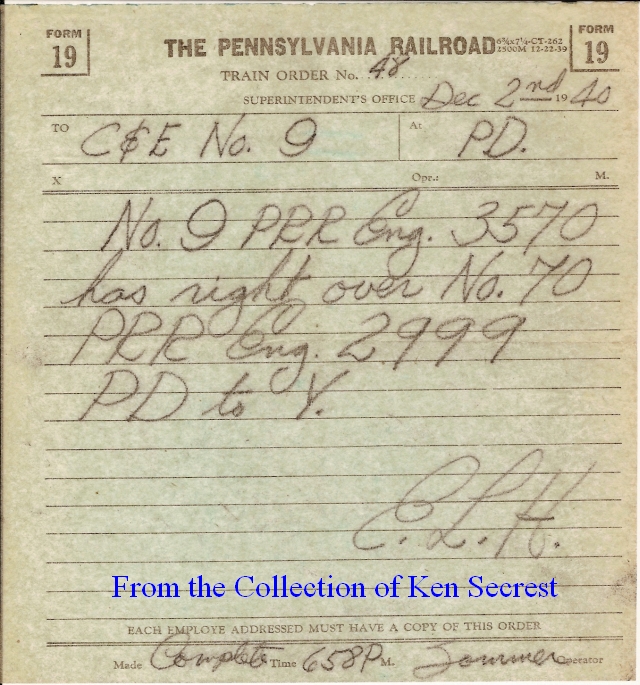 FORM 19
THE PENNSYLVANIA RAILROAD 6¾x7¼-CT-262
2500M 12-22-39
FORM 19
TRAIN ORDER No. 48
SUPERINTENDENT'S OFFICE Dec 2nd 1940
TO C&E No. 9 At PD.
X Opr.: M.
No. 9 PRR Eng. 3570
has right over No. 70
PRR Eng. 2999
PD to V.
C.L.H.
From the Collection of Ken Secrest
EACH EMPLOYE ADDRESSED MUST HAVE A COPY OF THIS ORDER
Made Complete Time 658P M. Sommer Operator